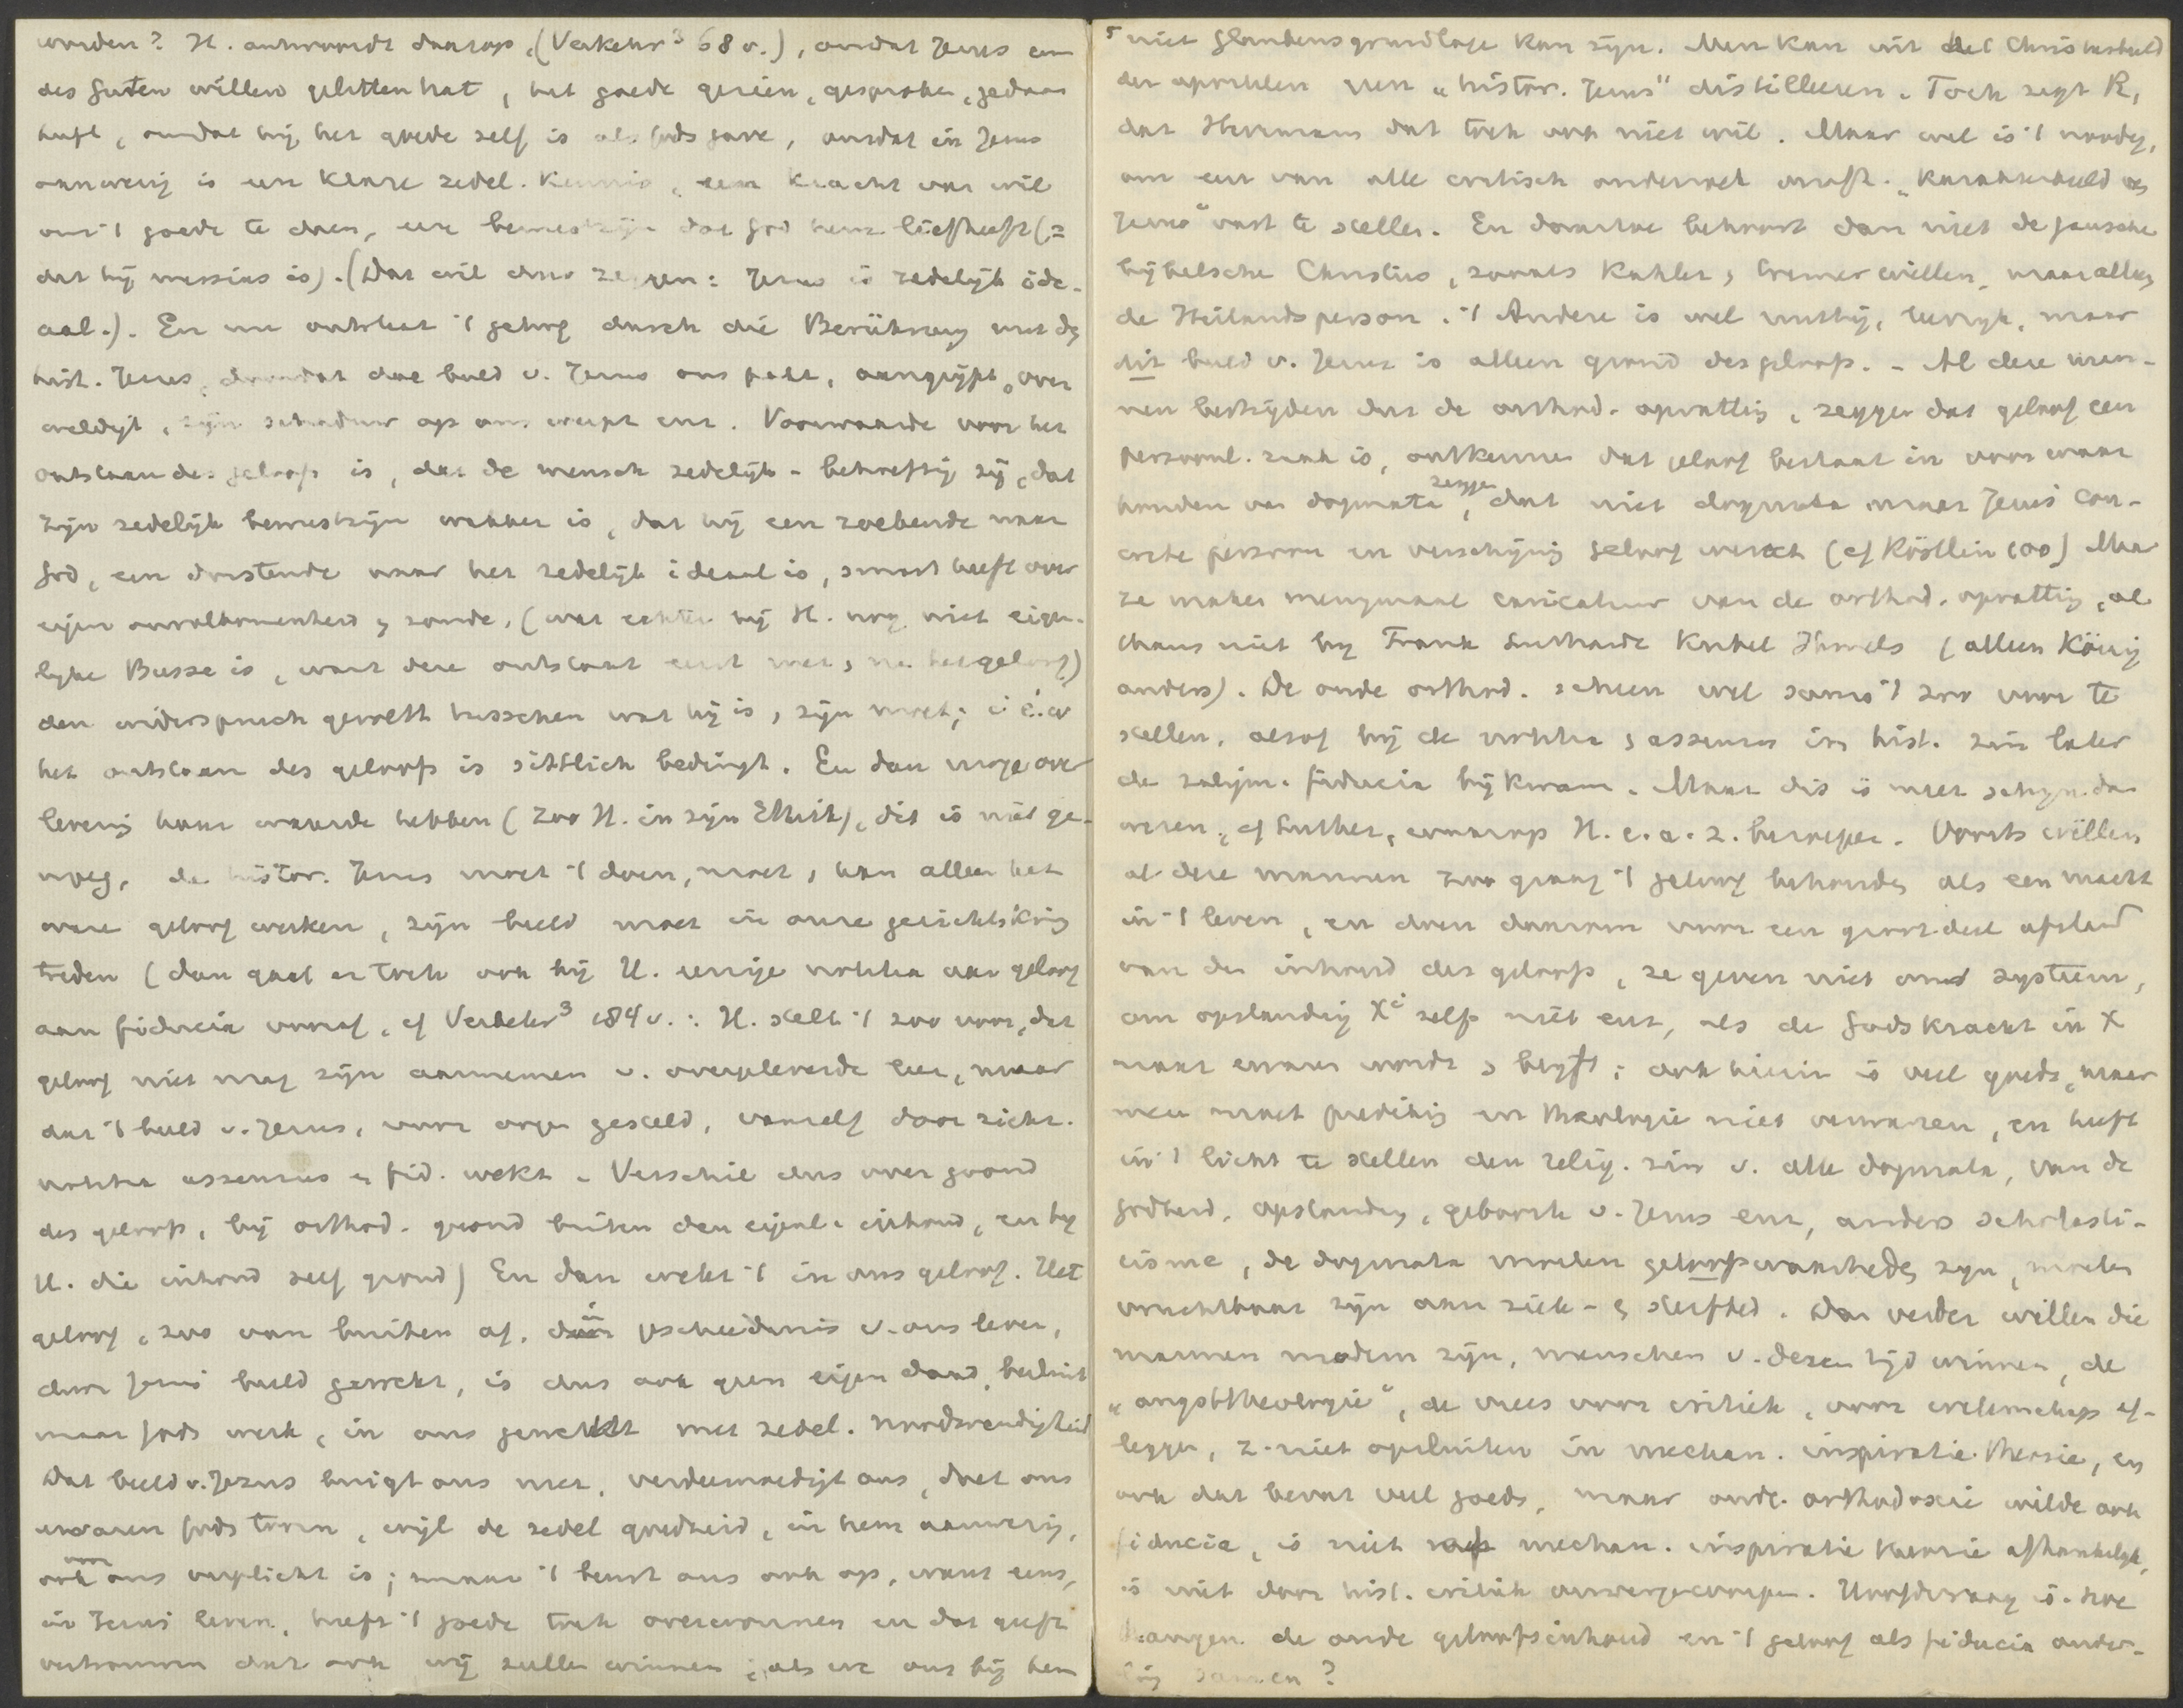 worden? H. antwoordt daarop, (Verkehr³ 68 v.), omdat Jezus um
des Guten willen gelitten hat, het goede gezien, gesproken, gedaan
heeft, omdat hij het goede zelf is als Gods gave, omdat in Jezus
aanwezig is een klare zedel. kennis, een kracht van wil
om 't goede te doen, een bewustzijn dat God hem liefheeft (=
dat hij messias is). (Dat wil dus zeggen: Jezus is zedelijk ide-
aal.). En nu ontstaat 't geloof durch die Berührung met dg
hist. Jezus, doordat dae beeld v. Jezus ons pakt, aangrijpt, over
weldigt, zijn schaduw op ons werpt enz. Voorwaarde voor het
ontstaan des geloofs is, dat de mensch zedelijk-behoeftig zij, dat
zijn zedelijk bewustzijn wakker is, dat hij een zoekende naar
God, een dorstende naar het zedelijk ideaal is, smart heeft over
eigen onvolkomenheid & zonde, (wat echter bij H. nog niet eigen-
lijke Busse is, want deze ontstaat eerst met & na het geloof)
den widerspruch gevoelt tusschen wat hij is & zijn moet; i.e.w
het ontstaan des geloofs is sittlich bedingt. En dan moge over
levering haar waarde hebben (zoo H. in zijn Ethik), dit is niet ge-
noeg, de histor. Jezus moet 't doen, moet & kan alleen het
ware geloof werken, zijn beeld moet in onze gezichtskring
treden (dan gaat er toch ook bij H. eenige notitia aan geloof
aan fiducia vooraf, cf Verkehr³ 184 v.: H. stelt 't zoo voor, dat
geloof niet mag zijn aannemen v. overgeleverde leer, maar
dat 't beeld v. Jezus, voor oogen gesteld, vanzelf door zich
notitia assensus & fid. wekt. Verschil dus over grond
des geloofs, bij orthod. grond buiten den eigenl. inhoud, en bij
H. die inhoud zelf grond) En dan wekt 't in ons geloof. Het
geloof, zoo van buiten af, in geschiedenis v. ons leven,
door Jezus' beeld gewekt, is dus ook geen eigen daad, besluit
maar Gods werk, in ons gewerkt met zedel. noodwendigheid
Dat beeld v. Jezus buigt ons neer, verdeemoedigt ons, doet ons
ervaren Gods toorn, wijl de zedel goedheid, in hem aanwezig,
ook voor ons verplicht is; maar 't beurt ons ook op, want eens,
in Jezus' leven, heeft 't goede toch overwonnen en dat geeft
vertrouwen dat ook wij zullen winnen, als we ons bij hem
niet Glaubensgrundlage kan zijn. Men kan uit het Christusbeeld
der apostelen geen „histor. Jezus" distilleeren. Toch zegt R,
dat Herrmann dat toch ook niet wil. Maar wel is 't noodig,
om een van alle critisch onderzoek onafh. „karakterbeeld v.
Jezus" vast te stellen. En daartoe behoort dan niet de gansche
bijbelsche Christus, zooals Kähler & Cremer willen, maar alleen
de Heilandsperson. 't Andere is wel nuttig, leerrijk, maar
dit beeld v. Jezus is alleen grond des geloofs. - Al deze men-
nen bestrijden dus de orthod. opvatting, zeggen dat geloof een
persoonl. zaak is, ontkennen dat geloof bestaat in voor waar
houden van dogmata, zeggen dat niet dogmata maar Jezus' con-
crete persoon en verschijning geloof werkt (cf Köstlin 100) Maar
ze maken menigmaal caricatuur van de orthod. opvatting, al
thans niet bij Frank Luthardt Kübel Ihmels (alleen König
anders). De oude orthod. scheen wel soms 't zoo voor te
stellen, alsof bij de notitia & assensus in hist. zin later
de zaligm. fiducia bijkwam. Maar dit is meer schijn dan
wezen, cf Luther, waarop H. e.a. z. beroepen. Voorts willen
al deze mannen zoo graag 't geloof behouden als een macht
in 't leven, en doen daarom voor een groot deel afstand
van den inhoud des geloofs, ze geven niet om systeem,
om opstanding Xⁱ zelfs niet enz, als de Godskracht in X
maar ervaren wordt & blijft; ook hierin is veel goeds, maar
men moet prediking en theologie niet verwarren, en heeft
in 't licht te stellen den relig. zin v. alle dogmata, van de
Godheid, opstanding, geboorte v. Jezus enz, anders scholasti-
cisme, de dogmata moeten geloofswaarheden zijn, moeten
vruchtbaar zijn aan ziek- & sterfbed. Dan verder willen die
mannen modern zijn, menschen v. dezen tijd winnen, de
„angsttheologie", de vrees voor critiek, voor wetenschap af-
leggen, z. niet opsluiten in mechan. inspiratie-theorie, en
ook dat bevat veel goeds, maar oude orthodoxie wilde ook
fiducia, is niet mechan. inspiratie theorie afhankelijk,
is niet door hist. critiek omvergeworpen. Hoofdvraag is: hoe
hangen de oude geloofsinhoud en 't geloof als fiducia onder-
ling samen?